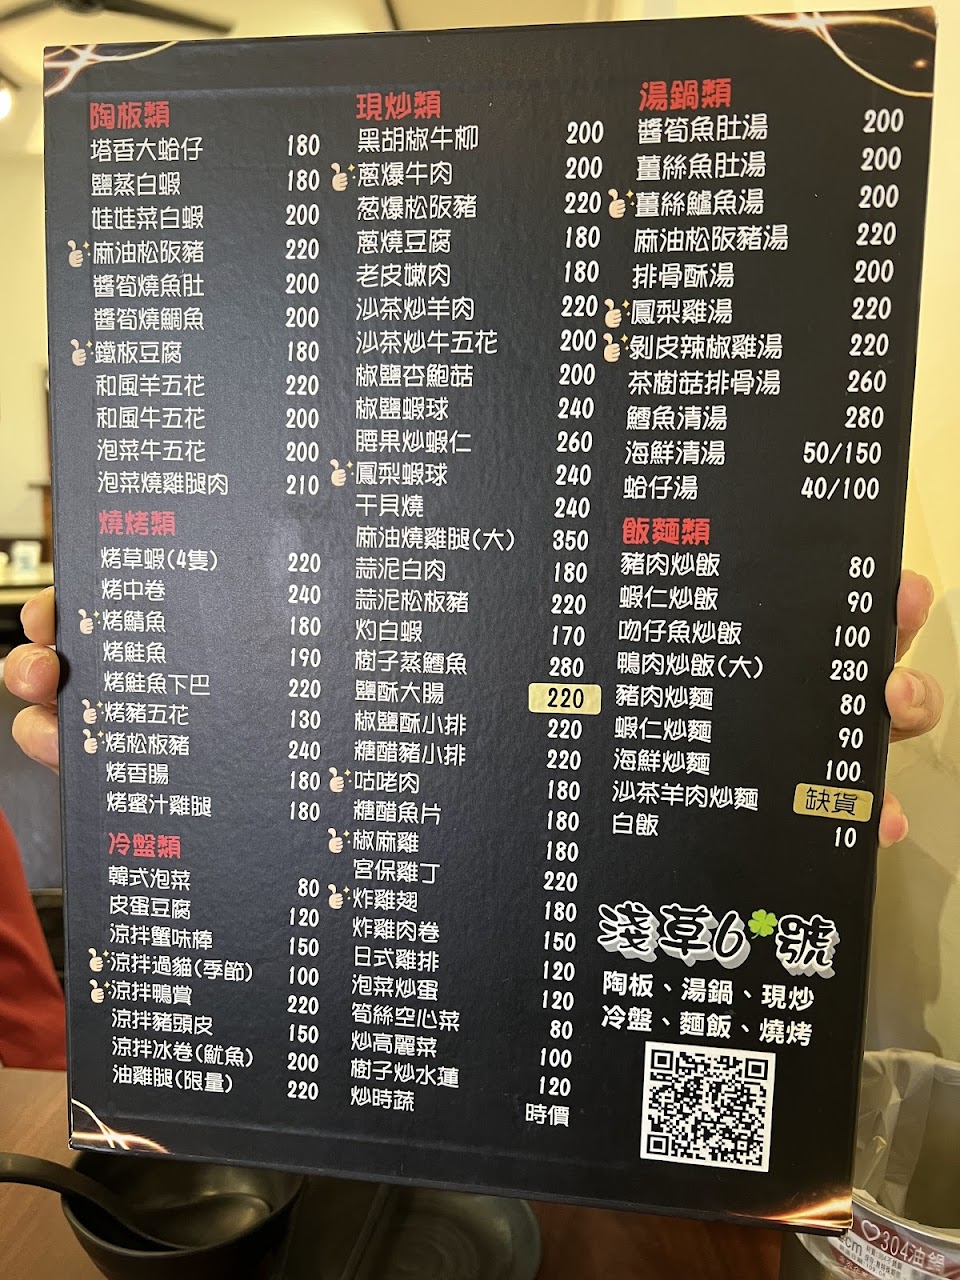 陶板類
塔香大蛤仔 180
鹽蒸白蝦 180
娃娃菜白蝦 200
麻油松阪豬 220
醬筍燒魚肚 200
醬筍燒鯛魚 200
鐵板豆腐 180
和風羊五花 220
和風牛五花 200
泡菜牛五花 200
泡菜燒雞腿肉 210
燒烤類
烤草蝦(4隻) 220
烤中卷 240
烤鯖魚 180
烤鮭魚 190
烤鮭魚下巴 220
烤豬五花 130
烤松板豬 240
烤香腸 180
烤蜜汁雞腿 180
冷盤類
韓式泡菜 80
皮蛋豆腐 120
涼拌蟹味棒 150
涼拌過貓(季節) 100
涼拌鴨賞 220
涼拌豬頭皮 150
涼拌冰卷(魷魚) 200
油雞腿(限量) 220
現炒類
黑胡椒牛柳 200
蔥爆牛肉 200
葱爆松阪豬 220
蔥燒豆腐 180
老皮嫩肉 180
沙茶炒羊肉 220
沙茶炒牛五花 200
椒鹽杏鮑菇 200
椒鹽蝦球 240
腰果炒蝦仁 260
鳳梨蝦球 240
干貝燒 240
麻油燒雞腿(大) 350
蒜泥白肉 180
蒜泥松板豬 220
灼白蝦 170
樹子蒸鱈魚 280
鹽酥大腸 220
椒鹽酥小排 220
糖醋豬小排 220
咕咾肉 180
糖醋魚片 180
椒麻雞 180
宮保雞丁 220
炸雞翅 180
炸雞肉卷 150
日式雞排 120
泡菜炒蛋 120
筍絲空心菜 80
炒高麗菜 100
樹子炒水蓮 120
炒時蔬 時價
湯鍋類
醬筍魚肚湯 200
薑絲魚肚湯 200
薑絲鱸魚湯 200
麻油松阪豬湯 220
排骨酥湯 200
鳳梨雞湯 220
剝皮辣椒雞湯 220
茶樹菇排骨湯 260
鱈魚清湯 280
海鮮清湯 50/150
蛤仔湯 40/100
飯麵類
豬肉炒飯 80
蝦仁炒飯 90
吻仔魚炒飯 100
鴨肉炒飯(大) 230
豬肉炒麵 80
蝦仁炒麵 90
海鮮炒麵 100
沙茶羊肉炒麵 缺貨
白飯 10
淺草6號
陶板、湯鍋、現炒
冷盤、麵飯、燒烤
304油鍋